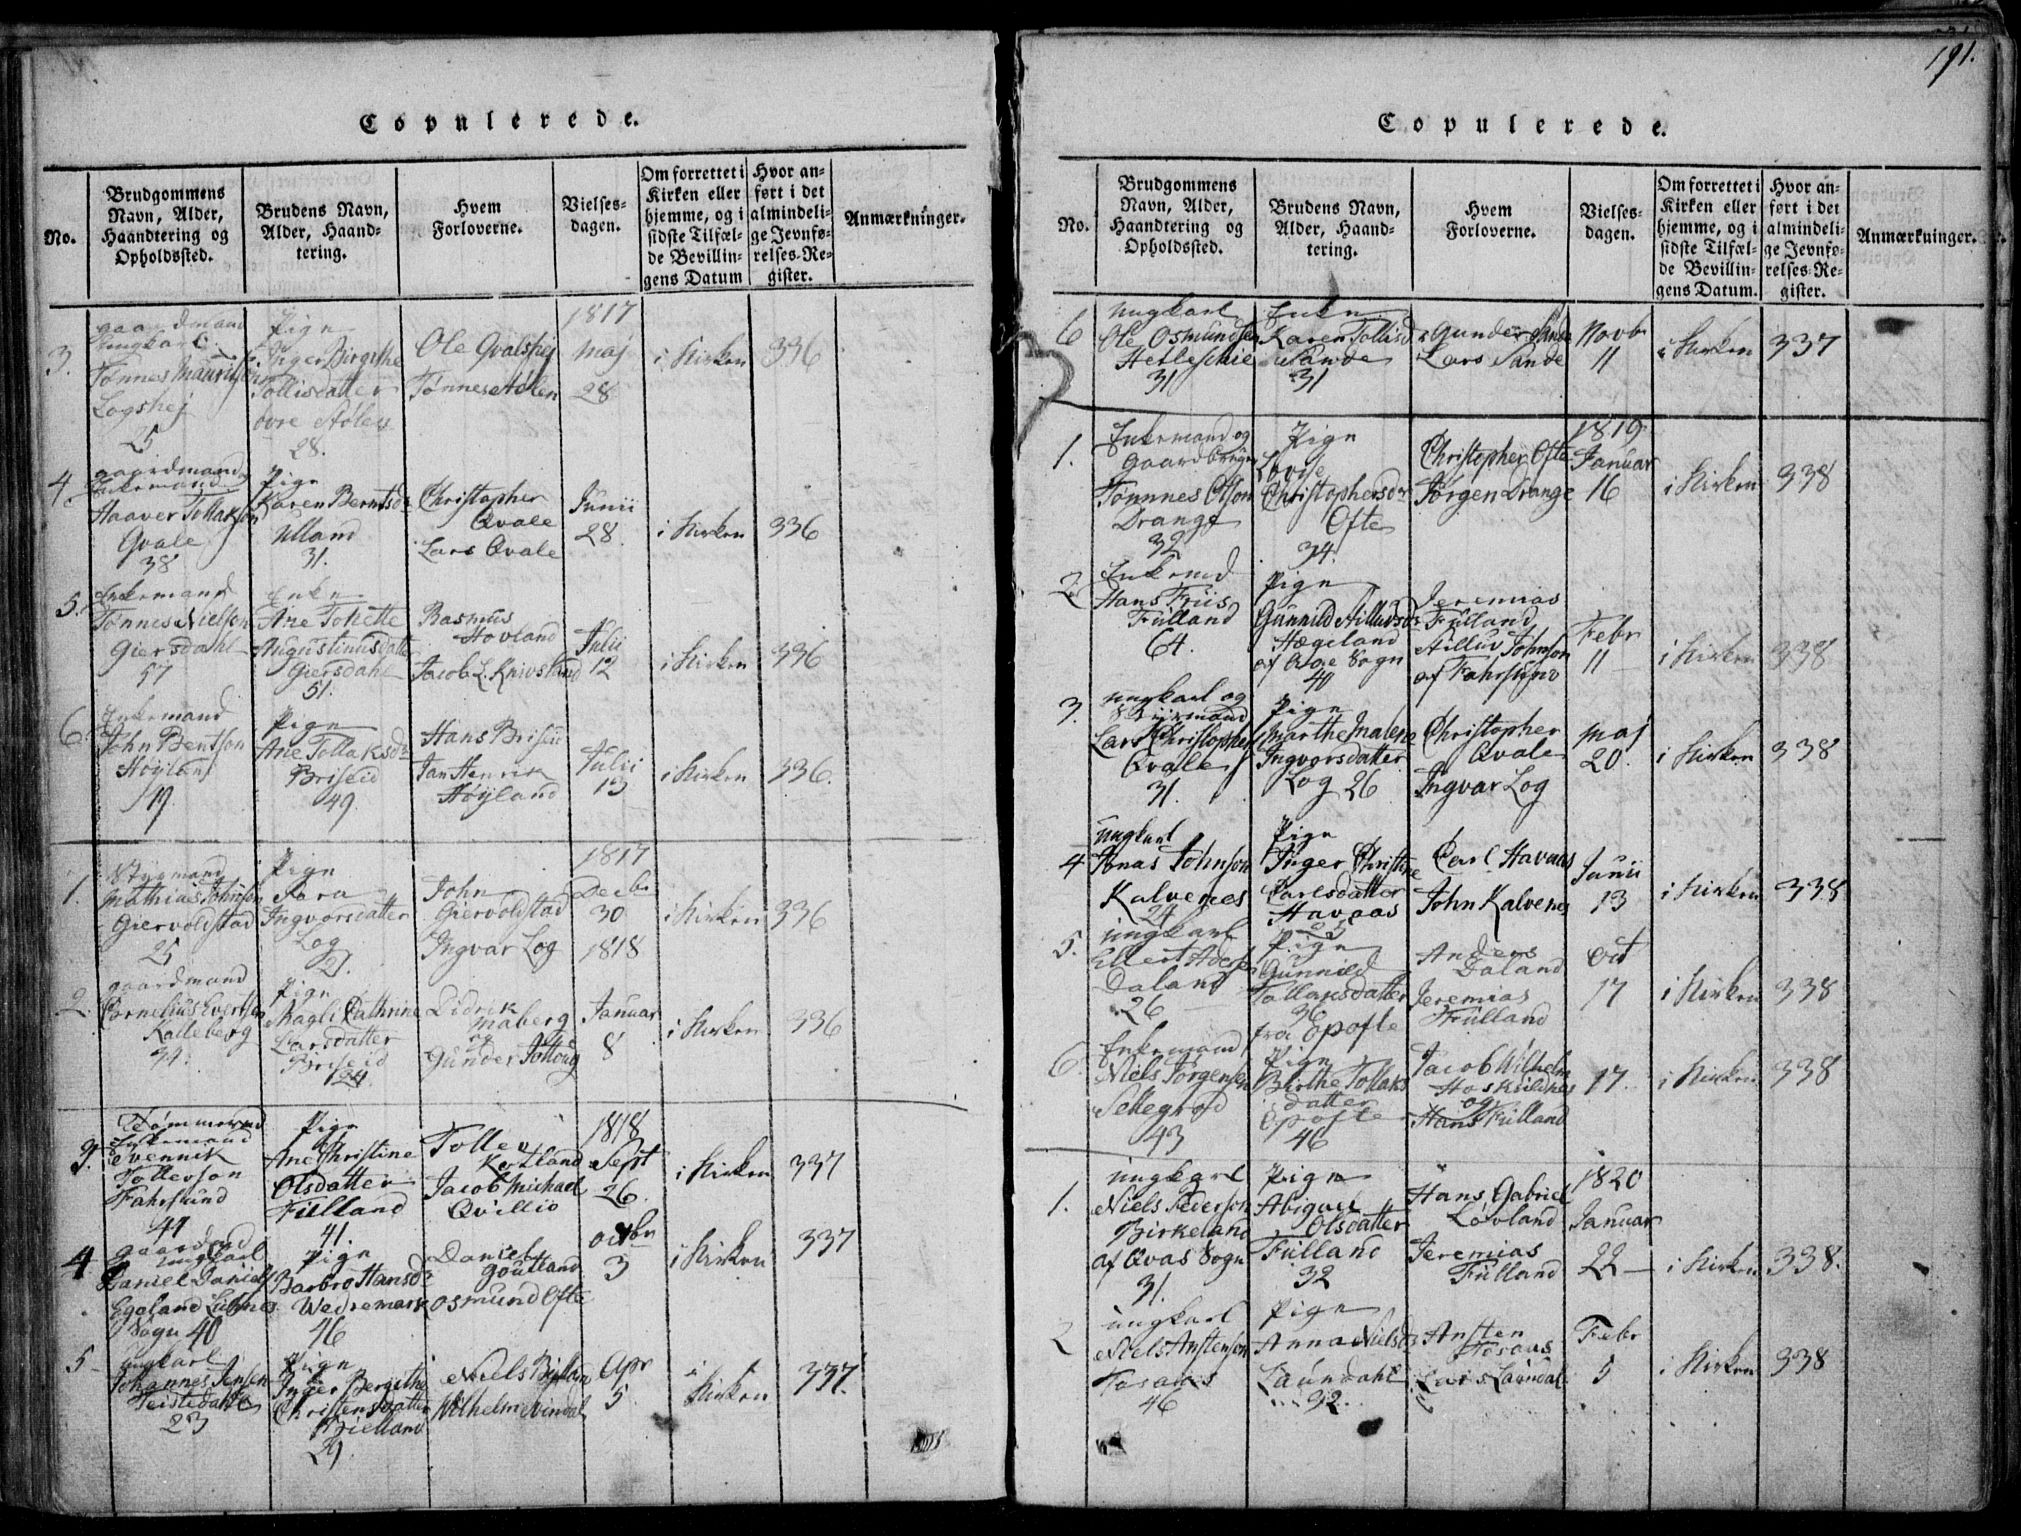 191.
Copulerede.
No.
Brudgommens Navn, Alder, Haandtering og Opholdssted.
Brudens Navn, Alder, Haand- tering.
Hvem Forloverne.
Vielses- dagen.
Om forrettet i Kirken eller hjemme, og i sidste Tilfæl- de Bevillin- gens Datum
Hvor an- ført i det almindeli- ge Jevnfø- relses-Re- gister.
Anmærkninger.
1817
3.
gaardmand
Ungkarl
Tønnes
Logshej
25
Pige
Inger Birgithe
Tollisdatter
øvre Stølen
28.
Ole Qvalshej
Tønnes Stølen
Maj
28
i Kirken
336
4.
gaardmand
Enkemand
Haaver Tollakson
Qvale
38
Pige
Karen Berntsdr
Ulland
31.
Christopher
Qvale
Lars Qvale
Junii
28.
i Kirken
336
5.
Enkemand
Tønnes Nielson
Giersdahl
57
Enke
Ane Tohette
Augustinusdatter
Giersdahl
51.
Rasmus
Hovland
Jacob L. Knivsland
Julii
12
i Kirken
336
6.
Enkemand
John Bentson
Høyland
Pige
Ane Tollaksdr
Briseid
49.
Hans Briseid
Jan Henrik
Høyland
Julii
13
i Kirken
336.
1.
Styrmand
Mathias Johnson
Giervoldstad
25
Pige
Sara
Ingvorsdatter
Log
John
Giervoldstad
Ingvar Log
1817
Decbr
30
1818
i Kirken
336
2.
gaardmand
Cornelius Evertsen
Kalleberg
Pige
Magli Cathrine
Larsdatter
Briseid
Didrik
Maberg
og
Gunder
Januar
8
i Kirken
336
3.
Tømmermand
Enkemand
Svennik
Tollerson
Fahrsund
Pige
Ane Christine
Olsdatter
Fülland
41.
Tollev
Kortland
Jacob Michael
Qvillio
1818
Sept
26.
i Kirken
337
4
Ungkarl
Daniel Daniels
Egeland
Sogn 40
Pige
Barbro Hansdr
Wedremark
46
Daniel
Osmund Ofte
octbr
3
i Kirken
337
5
Ungkarl
Johannes Jensen
Feistedahl
23
Pige
Inger Bergithe
Christensdatter
Bielland
29
Niels
Wilhelm Svindal
Apr
5
i Kirken
337.
Copulerede.
No.
Brudgommens Navn, Alder, Haandtering og Opholdssted.
Brudens Navn, Alder, Haand- tering.
Hvem Forloverne.
Vielses- dagen.
Om forrettet i Kirken eller hjemme, og i sidste Tilfæl- de Bevillin- gens Datum.
Hvor an- ført i det almindeli- ge Jevnfø- relses-Re- gister.
Anmærkninger.
6
Ungkarl
Ole Osmundsen
Hetleschie
31
Enke
Karen Tollisdr
Sande
31
Gunder Sande
Lars Sande
Novbr
11
i Kirken
337
1.
Enkemand og
gaardbruger
Tønnnes Olson
Drange
32
Pige
Lovise
Christophersdr
Ofte
34
Christopher Ofte
Jørgen Drange
1819
Januar
16
i Kirken
338
2
Enkemd
Hans Friis
Fülland
64.
Pige
Gunnild Aillufsdr
Hægeland
af Qvas Sogn
40
Jeremias
Fülland
Ailluv Johnson
af Fahrsund
Febr
11
i Kirken
338
3.
Ungkarl og
Lars Christophers
Qvale
31.
Pige
Marthe Malene
Ingvorsdatter
Log 26
Christopher
Qvale
Ingvar Log
Maj
20.
i Kirken
338
4
Ungkarl
Jonas Johnson
Kalvenes
24
Pige
Inger Christine
Carlsdatter
Havaas
25
Carl Havaas
John Kalvenes
Junii
13
i Kirken
338
5.
Ungkarl
Ellert Aders
Daland
26
Pige
Gunnild
Tallaksdatter
36
fra Opofte
Anders
Daland
Jeremias
Fülland
oct
17
i Kirken
338
6.
Enkemand
Niels Jørgensen
Sellegrod
43
Pige
Birthe Tollaks
datter
Opofte
46
Jacob Wilhelm
og
Hans Fülland
17.
i Kirken
338
1.
Ungkarl
Niels Pederson
Birkeland
af Qvas Sogn
31.
Pige
Abigael
Olsdatter
Fülland
32
Hans Gabriel
Løvland
Jeremias
Fülland
1820
Januar
22
i Kirken
338.
2
Ungkarl
Niels Anstenson
Tosaas
46
Pige
Anna Nielsdr
Laundahl
32.
Ansten
Tosaas
Lars Laundal
Febr
5
i Kirken
338